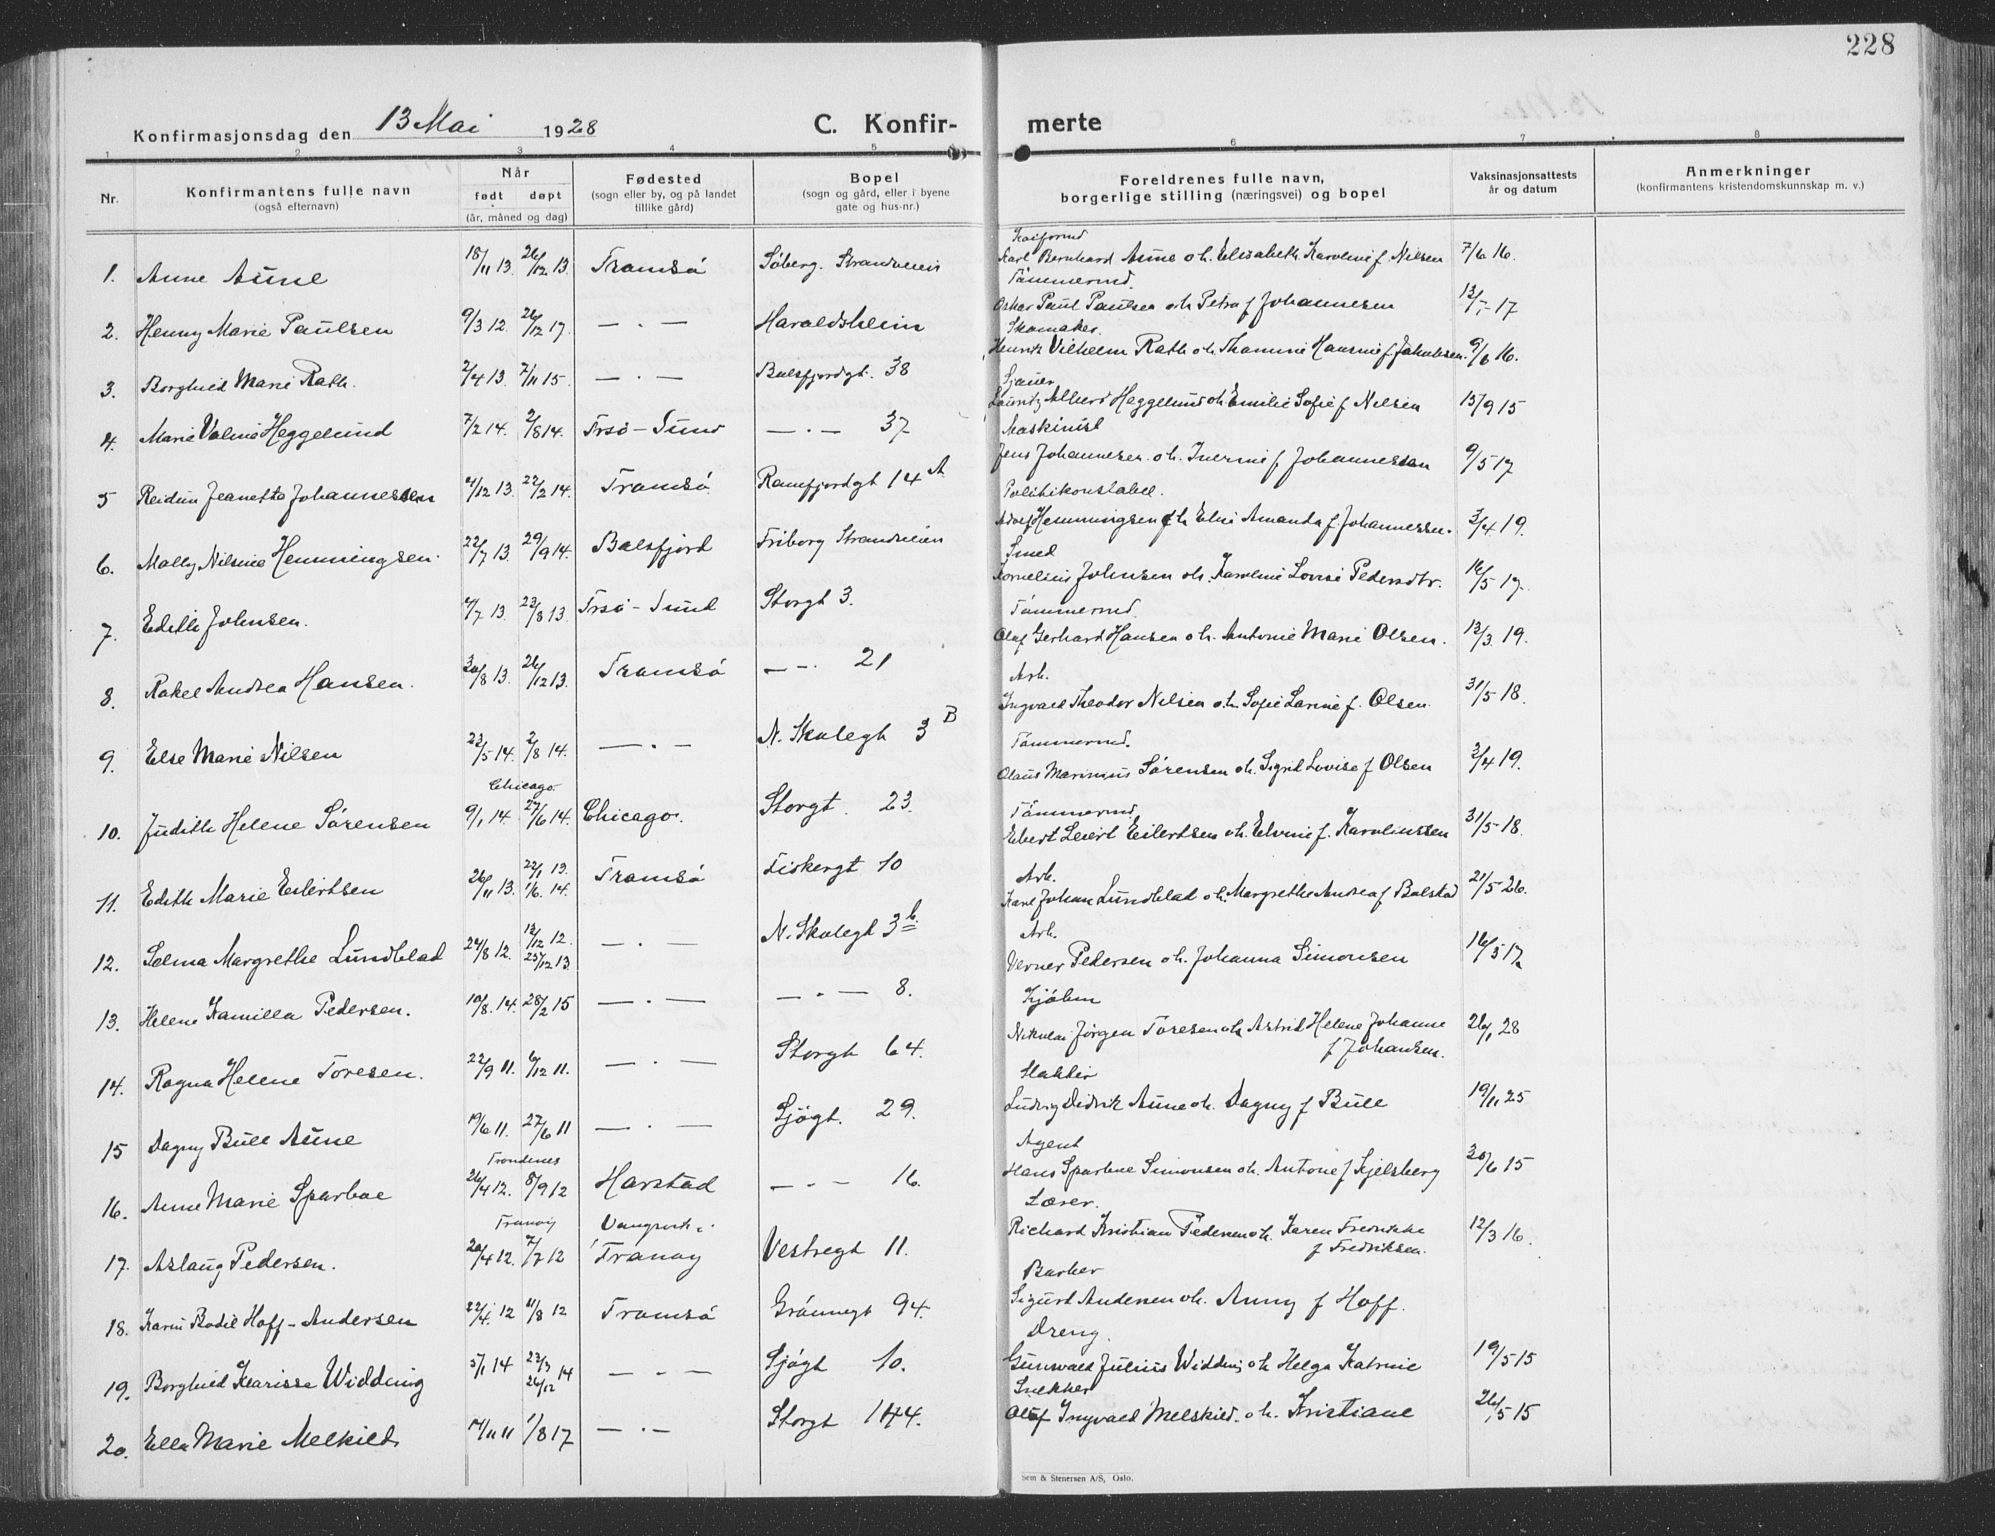 228
Konfirmasjonsdag den 13 Mai 1928
C. Konfir- merte
1 2 3 4 5 6 7 8
Nr.
Konfirmantens fulle navn
(også efternavn)
Når
født døpt
(år, måned og dag)
Fødested
(sogn eller by, og på landet
tillike gård)
Bopel
(sogn og gård, eller i byene
gate og hus-nr.)
Foreldrenes fulle navn,
borgerlige stilling (næringsvei) og bopel
Vaksinasjonsattests
år og datum
Anmerkninger
(konfirmantens kristendomskunnskap m. v.)
1. Anne Aune 18/11 13. 26/12 13. Tromsö Söberg. Strandveien
Karl Bernhard Aune o h. Elisabeth Karoline f. Nilsen 7/6 16.
Tömmermd.
2. Henny Marie Paulsen 9/3 12. 26/12 17. — . — Haraldsheim
Oskar Paul Paulsen o h Petra f Johannesen 17
Skomaker.
3. Borghild Marie Rath. 2/4 13. 7/11 15. — . — Balsfjordgt. 38
Henrik Vilhelm Rath o h. Thomine Hansine f. Jakobsen. 9/6 16.
Sjauer
4. Marie Valine Heggelund 7/2 14. 2/8 14. Trsö - Sund — . — 37
Lauritz Albert Heggelund o h Emilie Sofie f Nilsen 15/9 15
Maskinist
5 Reidun Jeanette Johannessen 4/12 13. 22/2 14. Tromsö Ramfjordgt 14 A
Jens Johannesen o. h. Inermie f Johannessen 9/5 17
Politikonstabel.
6. Molly Nilsine Henningsen. 22/7 13. 29/9 14. Balsfjord Friborg Strandveien
Adolf Hemmingsen o h Elni Amanda f. Johannessen. 3/4 19.
Smed
7. Edith Johnsen. 4/7 13. 23/8 13. Trsö - Sund Storgt 3.
Kornelius Johnsen o h. Karoline Lovise Pedersdtr. 16/5 17.
Tömmermd
8. Rakel Andrea Hansen. 30/8 13. 26/12 13. Tromsö — - . 21
Olaf Gerhard Hansen o h. Antonie Marie Olsen. 13/3 19.
Arb.
9. Else Marie Nilsen 23/5 14. 2/8 14. — . — N. Skolegt 3 B
Ingvald Theodor Nilsen o. h. Sofie Larine f. Olsen 31/5 18.
Tömmermd.
Chicago.
10. Judith Helene Sörensen 9/1 14. 27/6 14. Chicago. Storgt. 23.
Olaus Marinius Sörensen o h. Sigrid Lovise f Olsen 3/4 19.
Tömmermd
11. Edith Marie Eilertsen 26/11 13. 22/1 13. 1/6. 14. Tromsö Fiskergt 10
Ebert Leiert Eilertsen o h. Elvine f. Karolinssen 31/5 18.
Arb.
12. Selma Margrethe Lundblad 24/8 12. 13/12 12. 25/12 13. — . — N. Skolegt 3 b.
Karl Johan Lundblad o h. Margrethe Andrea f Balstad 21/5 26.
Arb.
13. Helene Kamilla Pedersen. 10/8. 14. 28/2 15 — . — — . — 8.
Verner Pedersen o h. Johanna Simonsen 16/5 17
Kjöbm
14. Ragna Helene Toresen. 22/9 11. 6/12 11. — . — Storgt 64.
Nikolai Jörgen Toresen o h Astrid Helene Johanne 26/1 28
f Johansen.
Slakter
15 Dagny Bull Aune 19/6 11. 27/6 11 — . — Sjögt. 29.
Ludvig Didrik Aune o h. Dagny f Bull 19/11 25
Agent
Trondenes
16. Anne Marie Sparboe 26/4 12. 8/9 12 Harstad — - — 16.
Hans Sparboe Simonsen o h. Antonie f Kjelsberg 30/6 15
Lærer.
Tranöy
17. Aslaug Pedersen. 20/4 12. 7/7 12 Tranöy Vestregt 11.
Richard Kristian Pedersen o h. Karen Fredrikke 12/3 16.
f Fredriksen.
Barber
18. Karin Bodil Hoff - Andersen 22/4. 12 11/8 12 Tromsö Grönnegt 94.
Sigurd Andersen o h. Anny f Hoff.
Dreng.
19. Borghild Klarisse Widding 5/1 14 23/3 14 26/12 — - — Sjögt 10.
Gunvald Julius Widding o h Helga Katrine 19/5 15
Snekker
20. Ella Marie Melkild 14/11 11 1/8 17 — . — Storgt 144.
Olaf Ingvald Melskild. o h. Kristiane 26/5 15
Sem & Stenersen A/S, Oslo.